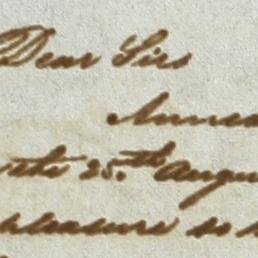 Dear Sirs
Annex
the 25.th Augu
pleasure so